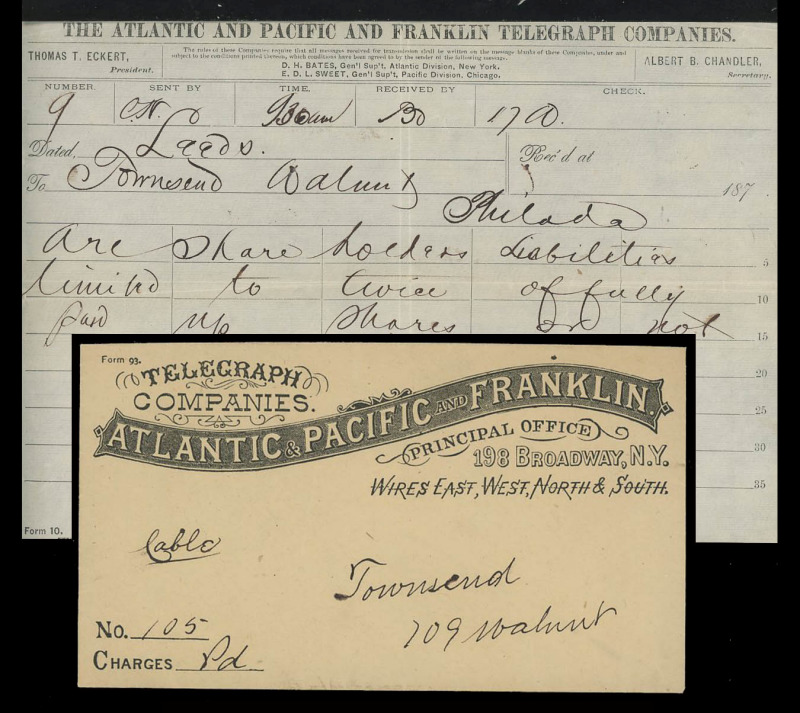 THE ATLANTIC AND PACIFIC AND FRANKLIN TELEGRAPH COMPANIES.
THOMAS T. ECKERT,
President.
The rules of these Companies require that all messages received for transmission shall be written on the message blanks of these Companies, under and
subject to the conditions printed thereon, which conditions have been agreed to by the sender of the following message.
D. H. BATES, Gen'l Sup't, Atlantic Division, New York.
E. D. L. SWEET, Gen'l Sup't, Pacific Division, Chicago.
ALBERT B. CHANDLER,
Secretary.
NUMBER. SENT BY TIME. RECEIVED BY CHECK.
9 930am 17
Dated, Leeds. Rec'd at
To Townsend Walnut 187
Philada
Are Share holders Liabilities 5
limited to twice of fully 10
paid up shares or not 15
20
25
30
35
Form 10.
Form 93.
TELEGRAPH
COMPANIES.
ATLANTIC & PACIFIC AND FRANKLIN.
PRINCIPAL OFFICE
198 BROADWAY, N.Y.
WIRES EAST, WEST, NORTH & SOUTH.
Cable
Townsend
709 Walnut
No. 105
CHARGES Pd